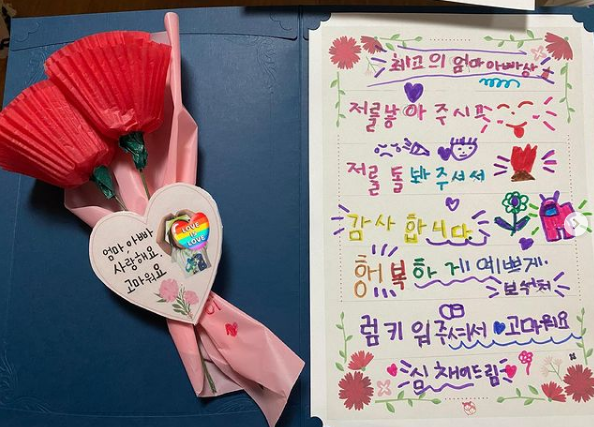 엄마,아빠
사랑해요.
고마워요
LOVE
IS
LOVE
최고의 엄마아빠상
저를낳아
저를 돌봐주셔서
감사합니다.
행복하게 예쁘게.
키워주셔서 고마워요
드림